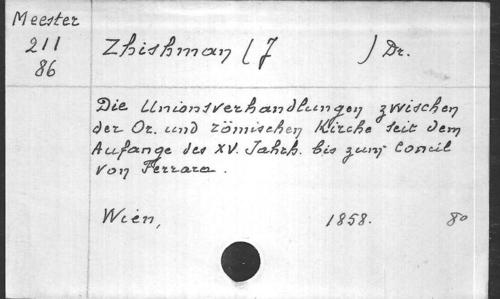 Meester
211
86
Zhishman (J ) Dr.
Die Unionsverhandlungen zwischen
der Or. und römischen Kirche seit dem
Anfange des XV. Jahrh. bis zum Concil
von Ferrara.
Wien, 1858. 8º